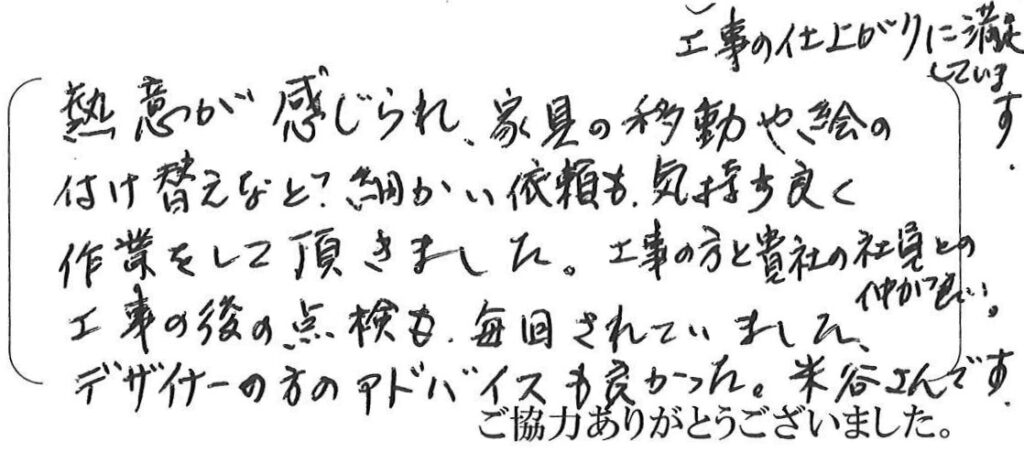 熱意が感じられ、家具の移動や、絵の
付け替えなど、細かい依頼も、気持ち良く
作業をして頂きました。工事の方と貴社の社員との
仲が良い。
工事の後の点検も、毎回されていました、
デザイナーの方のアドバイスも良かった。米谷さんです.
工事の仕上がりに満足
しています.
ご協力ありがとうございました。